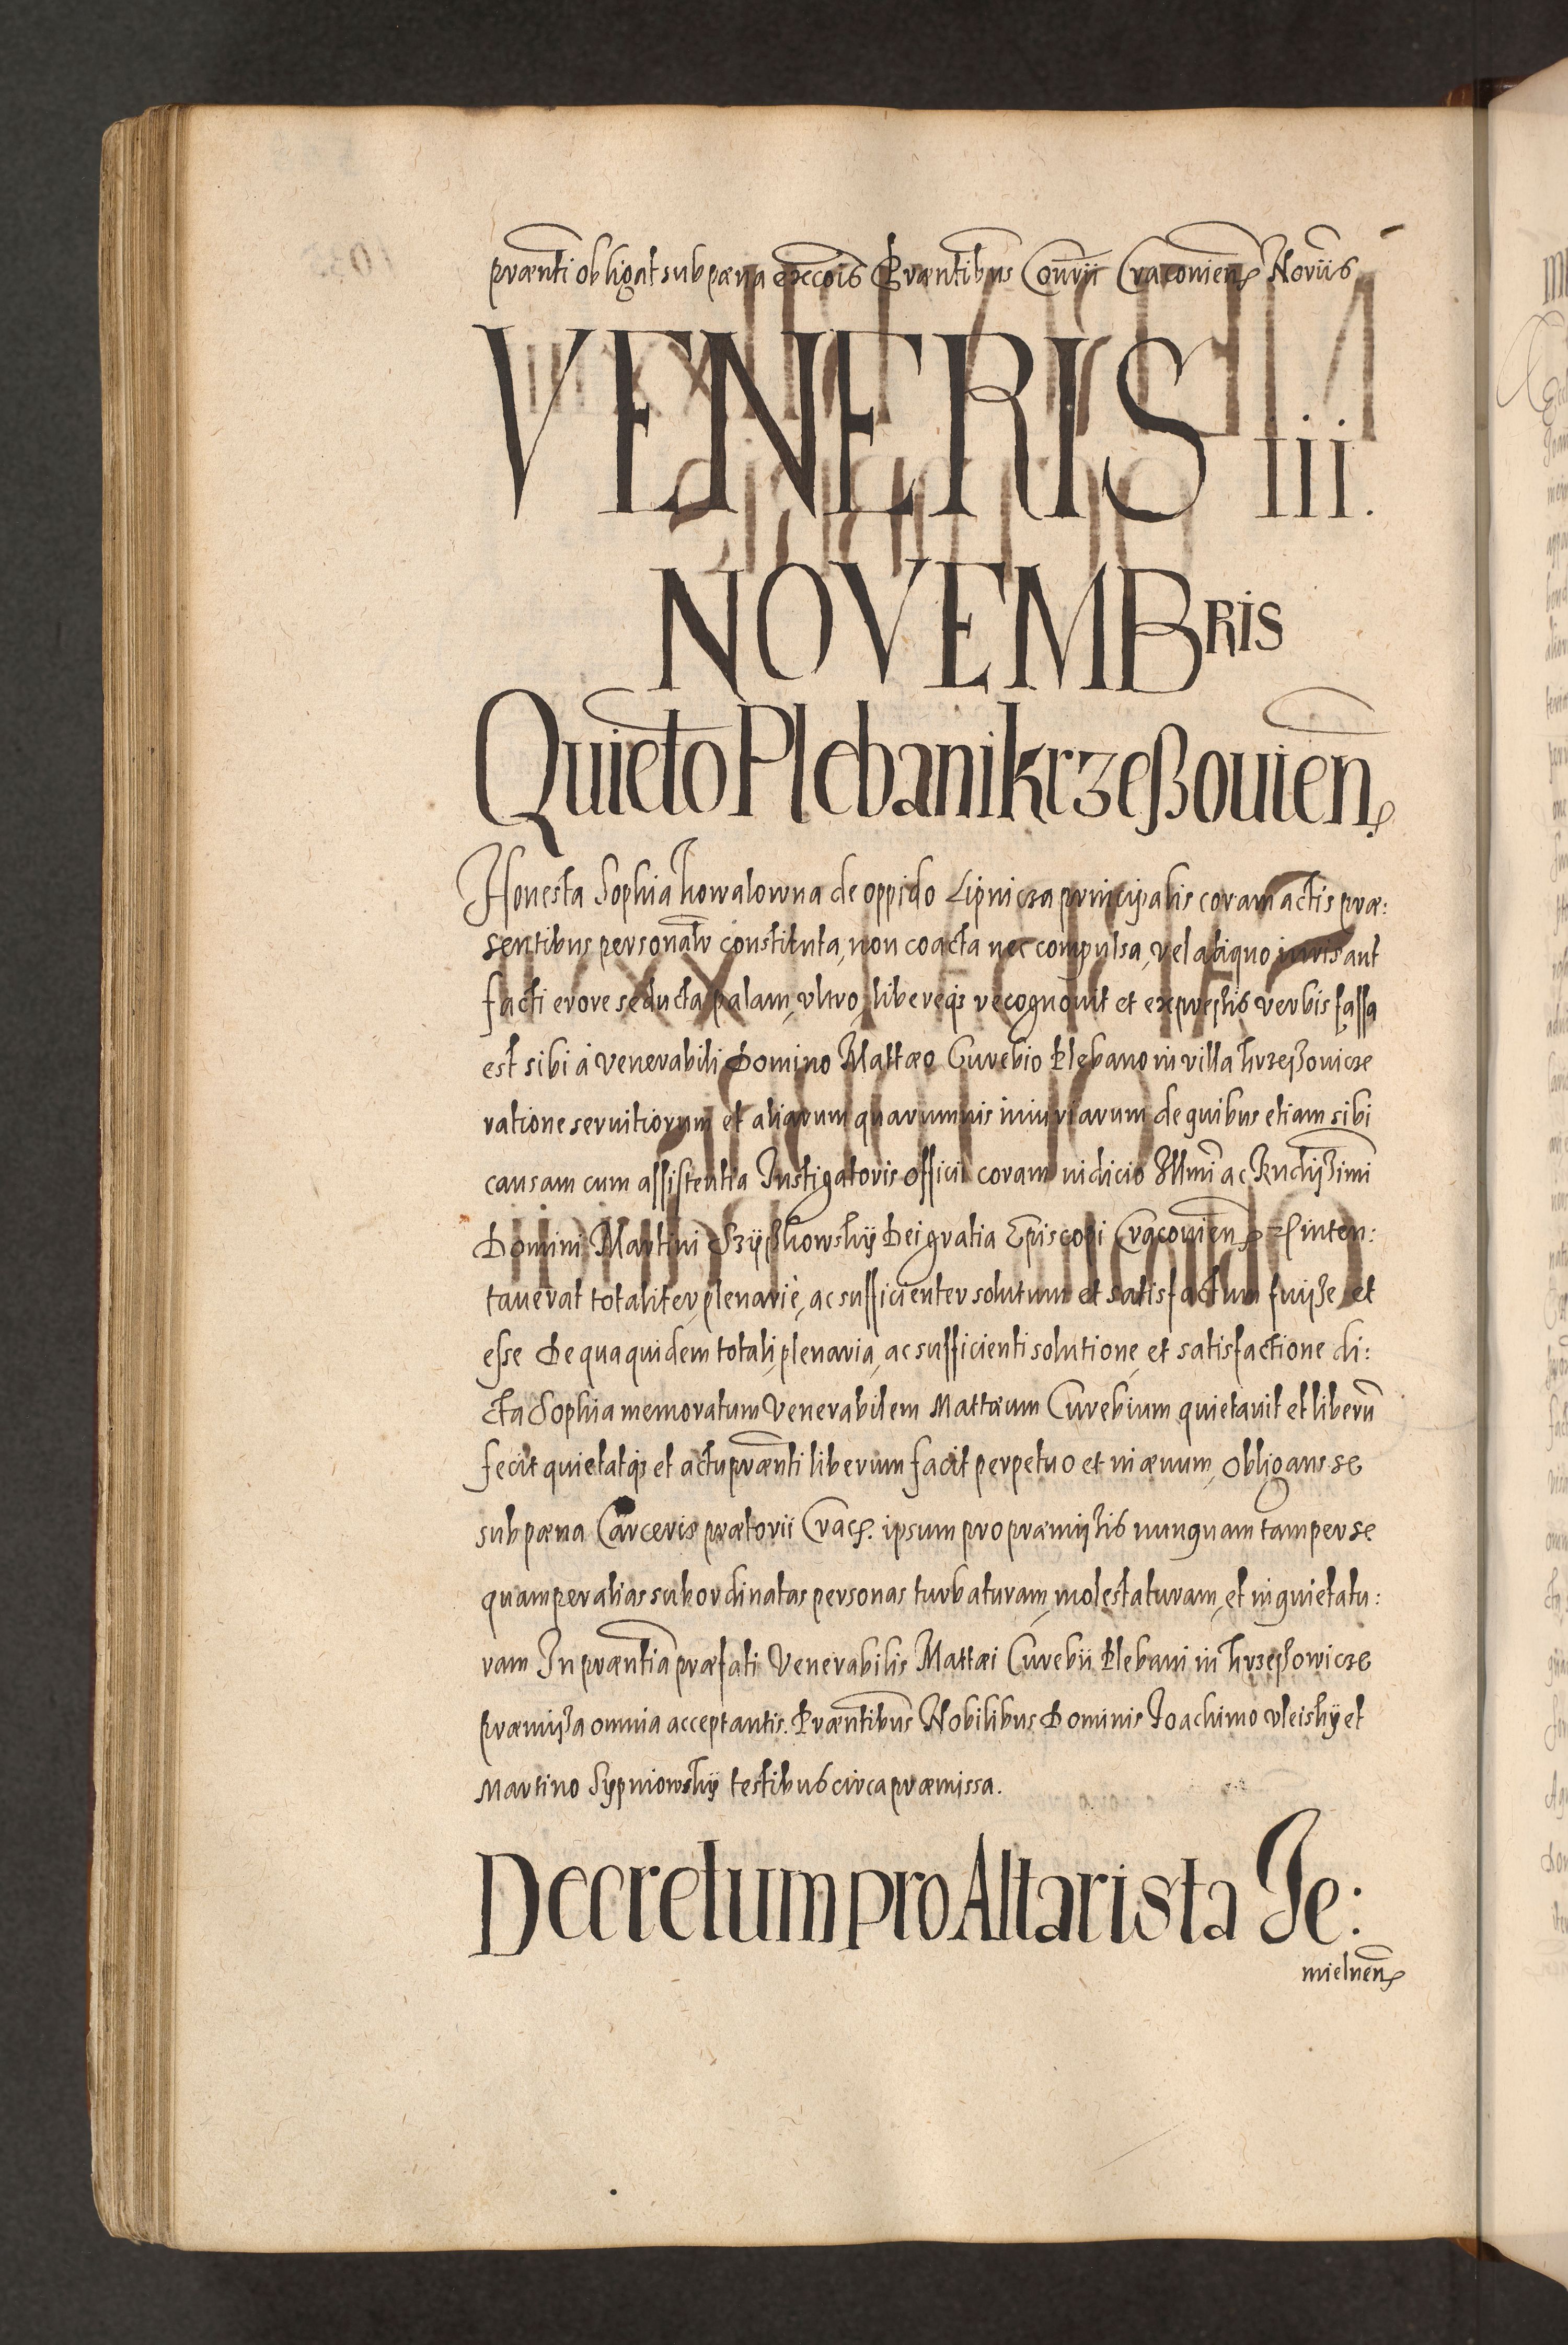 præn̄ti obligat sub pæna exc̄cois Præn̄tibus Con̄rii Cracovien̄ Noriis
VENERIS iii.
NOVEMBRIS
Quietō Plebani krzeßouien̄
Honesta Sophia kowalowna de oppido Lipnicza principalis coram actis præ:
sentibus personalr̄ constituta, non coacta nec compulsa, vel aliquo iuris aut
facti erore seducta palam, vltro, libereq3 recognouit et expressis verbis fassa
est sibi à Venerabili Domino Mattæo Curebio Plebano in villa krzeßouicze
ratione seruitiorum et aliarum quarumuis iniuriarum de quibus etiam sibi
causam cum assistentia Instigatoris officii coram iudicio Illmi ac Rndißimi
Domini Martini Szÿszkowskÿ Dei gratia Episcopi Cracouien̄ inten:
tauerat totaliter, plenariè, ac sufficienter solutum et satisfactum fuiße, et
esse De qua quidem totali, plenaria, ac sufficienti solutione, et satisfactione di:
cta Sophia memoratum Venerabilem Mattæum Curebium quietauit et liberū
fecit quietatq3 et actu præn̄ti liberum facit perpetuo et in æuum, obligans se
sub pæna Carceris prætorii Crac. ipsum pro præmißis nunquam tam per se
quam per alias subordinatas personas turbaturam, molestaturam, et inquietatu:
ram In præn̄tia præfati Venerabilis Mattæi Curebii Plebani in krzeßowicze
præmißa omnia acceptantis. Præn̄tibus Nobilibus Dominis Joachimo Vleiskÿ et
Martino Sypniowskÿ testibus circa præmissa.
Decretum pro Altarista Je:
mielnen̄